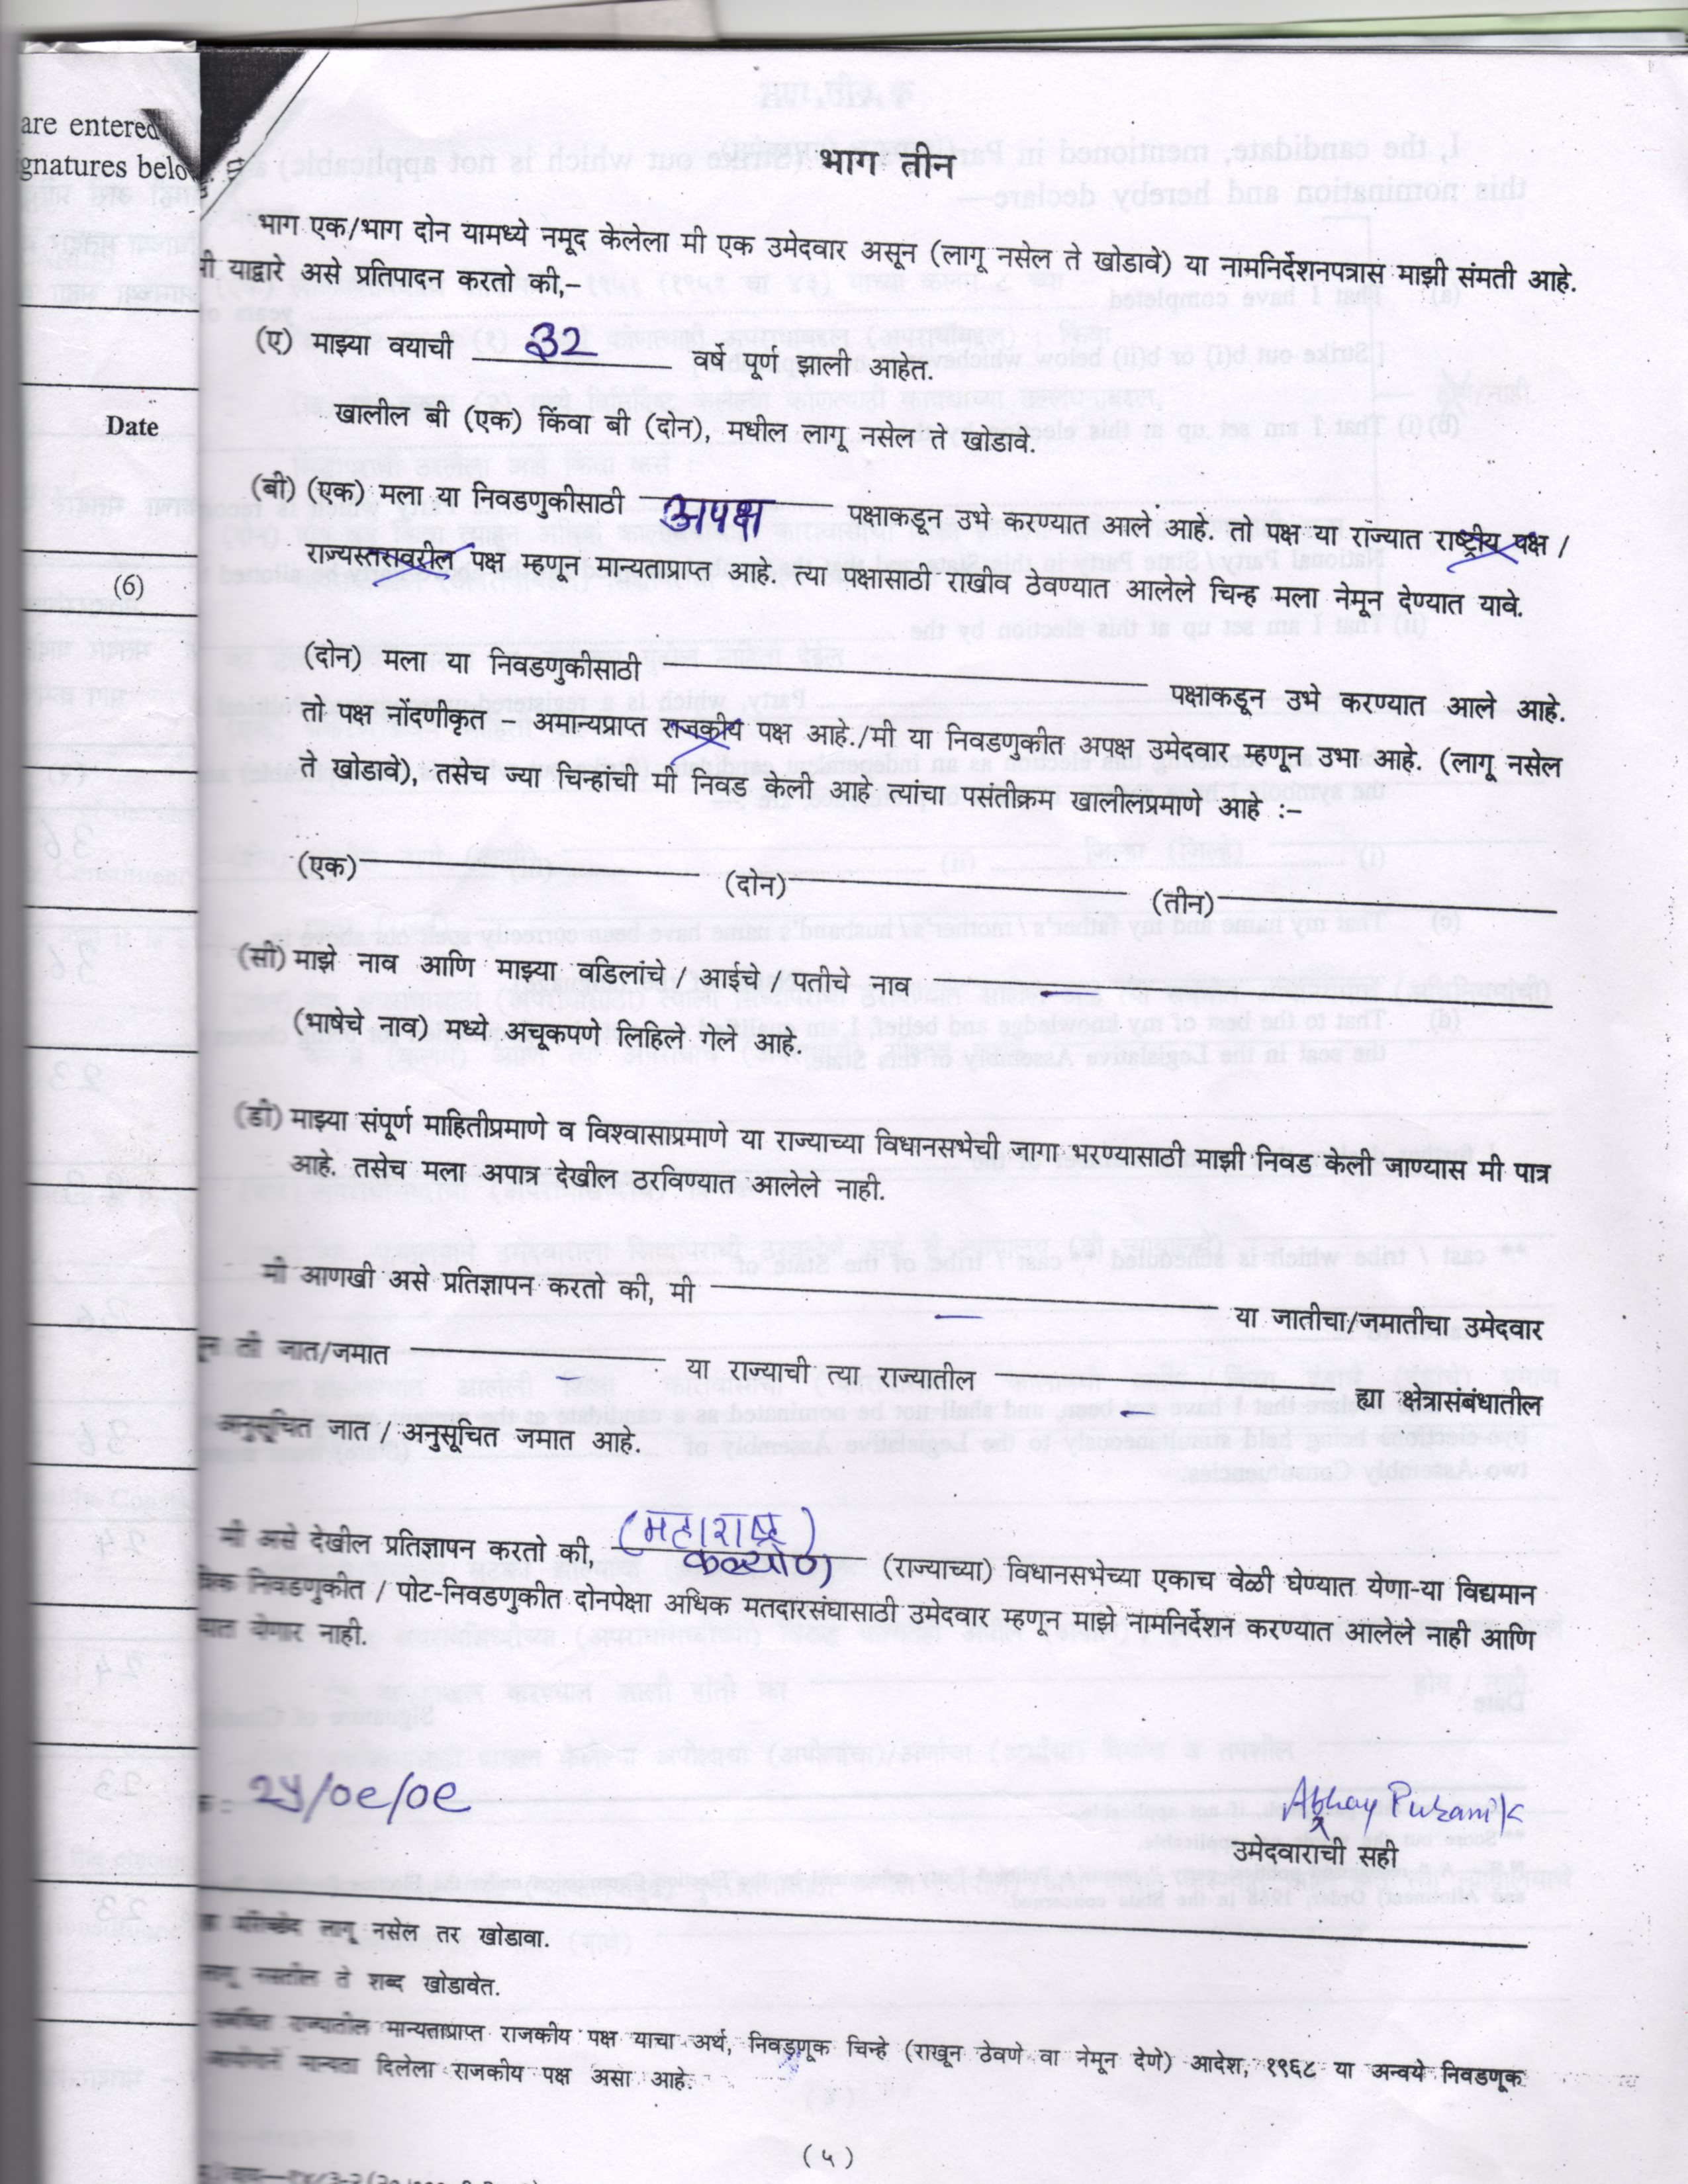 are entered
ignatures belo
Date
(6)
भाग तीन
भाग एक/भाग दोन यामध्ये नमूद केलेला मी एक उमेदवार असून (लागू नसेल ते खोडावे) या नामनिर्देशनपत्रास माझी संमती आहे.
मी याद्वारे असे प्रतिपादन करतो की,–
(ए) माझ्या वयाची ३२ वर्षे पूर्ण झाली आहेत.
खालील बी (एक) किंवा बी (दोन), मधील लागू नसेल ते खोडावे.
(बी) (एक) मला या निवडणुकीसाठी अपक्ष पक्षाकडून उभे करण्यात आले आहे. तो पक्ष या राज्यात राष्ट्रीय पक्ष /
राज्यस्तरावरील पक्ष म्हणून मान्यताप्राप्त आहे. त्या पक्षासाठी राखीव ठेवण्यात आलेले चिन्ह मला नेमून देण्यात यावे.
(दोन) मला या निवडणुकीसाठी पक्षाकडून उभे करण्यात आले आहे.
तो पक्ष नोंदणीकृत – अमान्यप्राप्त राजकीय पक्ष आहे./मी या निवडणुकीत अपक्ष उमेदवार म्हणून उभा आहे. (लागू नसेल
ते खोडावे), तसेच ज्या चिन्हांची मी निवड केली आहे त्यांचा पसंतीक्रम खालीलप्रमाणे आहे :–
(एक) (दोन) (तीन)
(सी) माझे नाव आणि माझ्या वडिलांचे / आईचे / पतीचे नाव
(भाषेचे नाव) मध्ये अचूकपणे लिहिले गेले आहे.
(डी) माझ्या संपूर्ण माहितीप्रमाणे व विश्वासाप्रमाणे या राज्याच्या विधानसभेची जागा भरण्यासाठी माझी निवड केली जाण्यास मी पात्र
आहे. तसेच मला अपात्र देखील ठरविण्यात आलेले नाही.
मी आणखी असे प्रतिज्ञापन करतो की, मी या जातीचा/जमातीचा उमेदवार
ती जात/जमात या राज्याची त्या राज्यातील ह्या क्षेत्रासंबंधातील
अनुसूचित जात / अनुसूचित जमात आहे.
मी असे देखील प्रतिज्ञापन करतो की, (महाराष्ट्र) (राज्याच्या) विधानसभेच्या एकाच वेळी घेण्यात येणा-या विद्यमान
निवडणुकीत / पोट-निवडणुकीत दोनपेक्षा अधिक मतदारसंघासाठी उमेदवार म्हणून माझे नामनिर्देशन करण्यात आलेले नाही आणि
येणार नाही.
२५/०९/०९
Abhay Puranik
उमेदवाराची सही
लागू नसेल तर खोडावा.
ते शब्द खोडावेत.
राज्यातील मान्यताप्राप्त राजकीय पक्ष याचा अर्थ, निवडणूक चिन्हे (राखून ठेवणे वा नेमून देणे) आदेश, १९६८ या अन्वये निवडणूक
मान्यता दिलेला राजकीय पक्ष असा आहे.
(५)